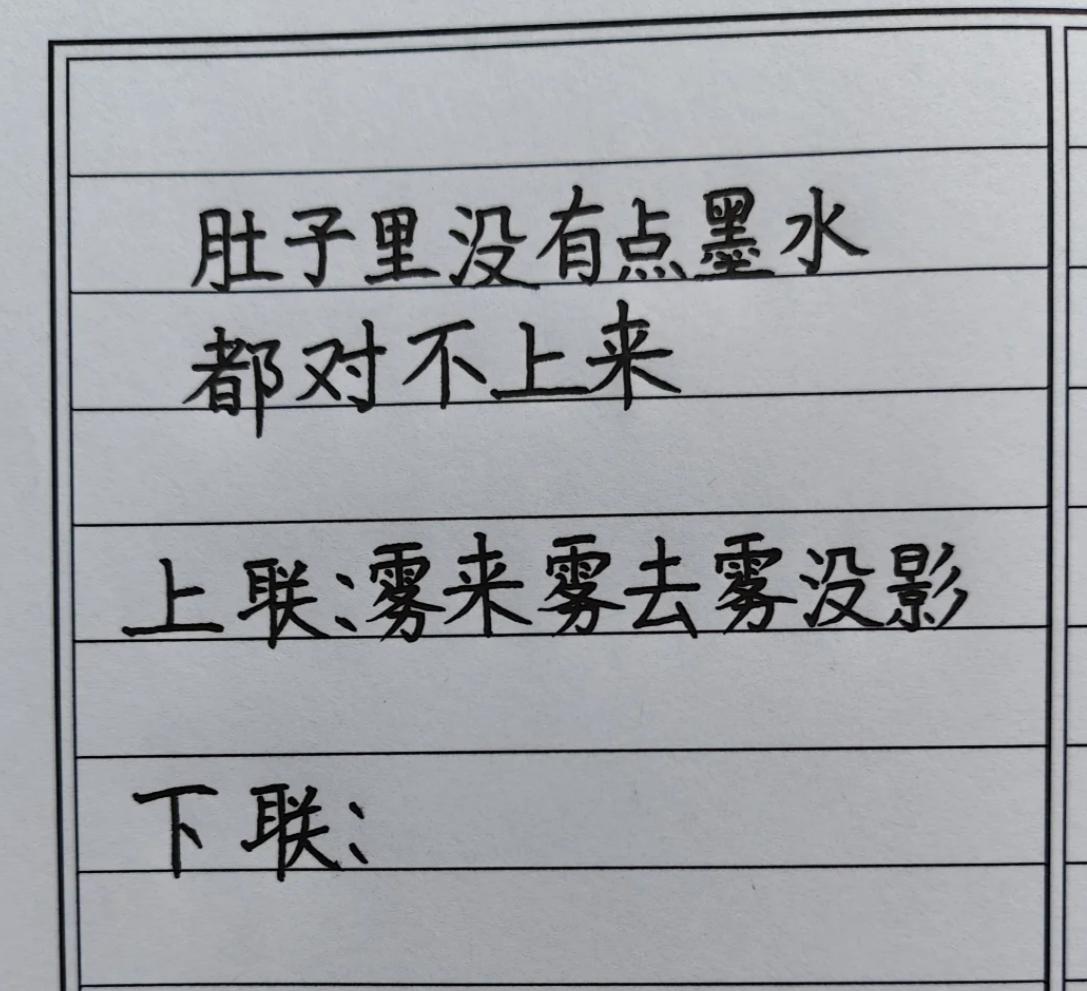 肚子里没有点墨水
都对不上来
上联:雾来雾去雾没影
下联: